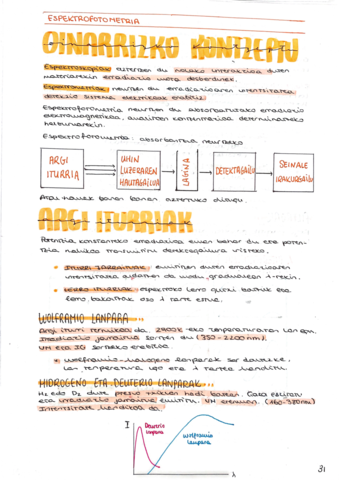 ESPEKTROFOTOMETRIA
OINARRIZKO KONTZEPTU
Espektroskopiak aztertzen du nolako interakzioa duen
materiarekin erradiazio mota desberdinek.
Espektrometriak neurtzen du erradiazioaren intentsitatea
detekzio sistema elektrikoak erabiliz.
Espektrofotometria neurtzen du absorbatutako erradiazio
elektromagnetikoa, analitoen kontzentrazioa determinatzeko
helburuarekin.
Espektrofotometria: absorbantzia neurtzeko
ARGI ITURRIA
UHIN LUZERAREN HAUTAGAILUA
LAGINA
DETEKTAGAILU
SEINALE IRAKURGAILU
Atal hauek banan banan aztertuko ditugu.
ARGI ITURRIAK
Potentzia konstanteko erradiazioa eman behar du eta poten-
tzia nahikoa transmititu detekzagarria izateko.
• ITURRI JARRAITUAK: emititzen duten erradiazioaren
intentsitatea aldatzen da modu gradualean λ-rekin.
• LERRO ITURRIAK: espektroko lerro gutxi batzuk eta
lerro bakoitzak oso λ tarte estua.
WOLFRAMIO LANPARA
Argi iturri termikoa da. 2900K-eko tenperaturatan lan egin.
Irradiazio jarraitua sortzen du (350-2200 nm).
UM eta IG sorteko erabilia
• Wolframio-halogeno lanparak ser daudeke,
lan tenperatura igo eta λ tartea handitu.
HIDROGENO ETA DEUTERIO LANPARAK
H₂ edo D₂ dute presio txikian hodi batean. Gasa eszitatu
eta irradiazio jarraitua emititu. UM eremuan. (160-370nm)
Intentsitate handikoa da
I
Deuterio lanpara
Wolframio lanpara
λ
31